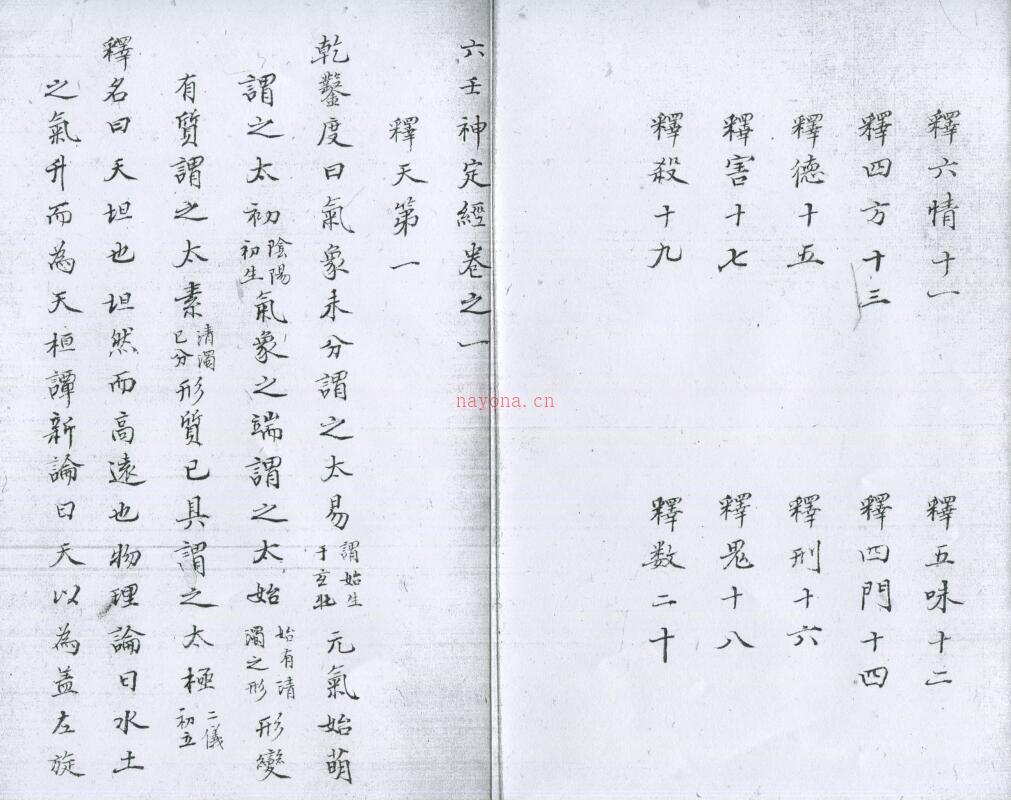 釋六情十一　釋五味十二
釋四方十三　釋四門十四
釋德十五　釋刑十六
釋害十七　釋鬼十八
釋殺十九　釋数二十
六壬神定經卷之一
釋天第一
乾鑿度曰氣象未分謂之太易謂始生于玄牝元氣始萌
謂之太初陰陽初生氣象之端謂之太始始有清濁之形形變
有質謂之太素清濁已分形質已具謂之太極二儀初立
釋名曰天坦也坦然而高遠也物理論曰水土
之氣升而為天桓譚新論曰天以為盖左旋
nayona.cn